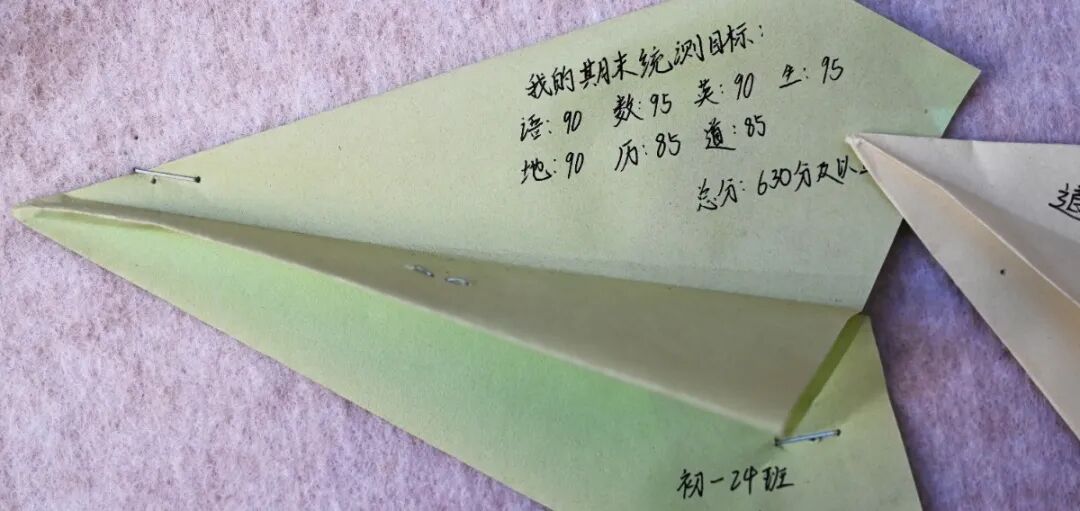 我的期末统测目标：
语：90 数：95 英：90 生：95
地：90 历：85 道：85
总分：630分及以
初一24班